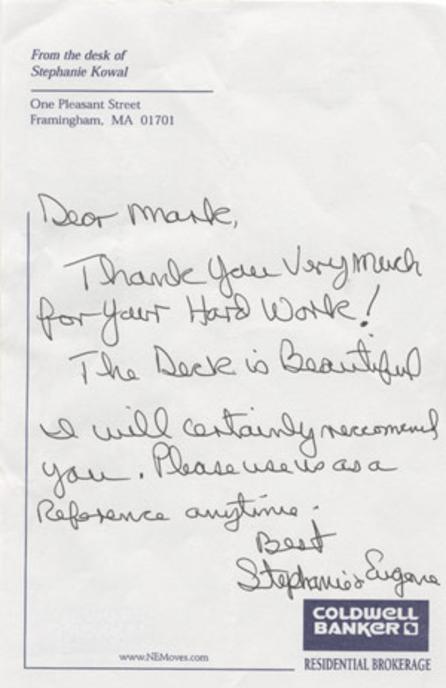 From the desk of
Stephanie Kowal
One Pleasant Street
Framingham, MA 01701
Dear Mark,
Thank You Very Much
for Your Hard Work!
The Deck is Beautiful
I will certainly reccomend
you. Please use us as a
Reference anytime.
Best
Stephanie & Eugene
COLDWELL
BANKER
www.NEMoves.com
RESIDENTIAL BROKERAGE